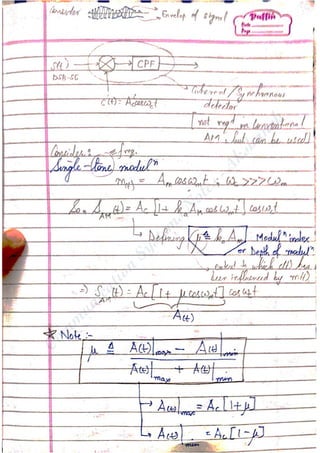 Consider → Envelop of signal
Date
Page
S(t) → ⊗ → CPF →
DSB-SC
C(t) = A'c cosωct
→ Coherent / Synchronous
detector
[not reqd in conventional
AM, but can be used]
Consider: freq.
Single-tone modulⁿ
m(t) = Am cosωmt ; ωc >>> ωm
So, SAM(t) = Ac [1 + ka Am cosωmt] cosωct
→ Defining μ ≜ ka Am Modulⁿ index
or Depth of modulⁿ
→ extent to which c(t) has
been influenced by m(t)
⇒ SAM(t) = Ac [1 + μ cosωmt] cosωct
A(t)
* Note :-
μ ≜ A(t)|max − A(t)|min
A(t)|max + A(t)|min
→ A(t)|max = Ac [1+μ]
→ A(t)|min = Ac [1-μ]